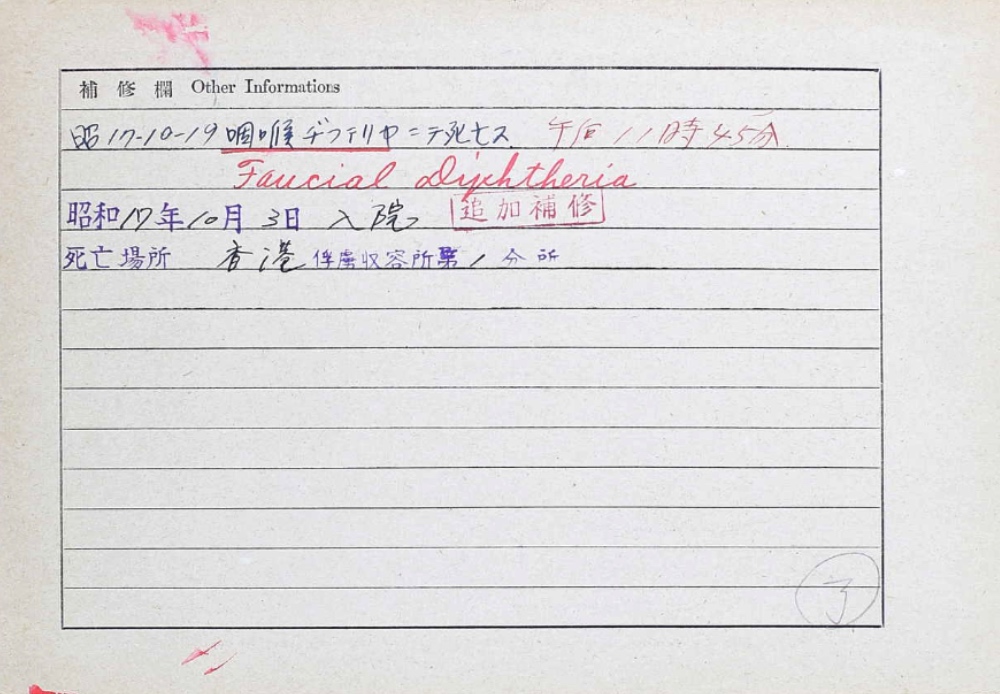 補修欄 Other Informations
昭17-10-19 咽喉ヂフテリヤニテ死亡ス 午后11時45分
Faucial Diphtheria
昭和17年10月3日 入院 追加補修
死亡場所 香港俘虜収容所第1分所
了